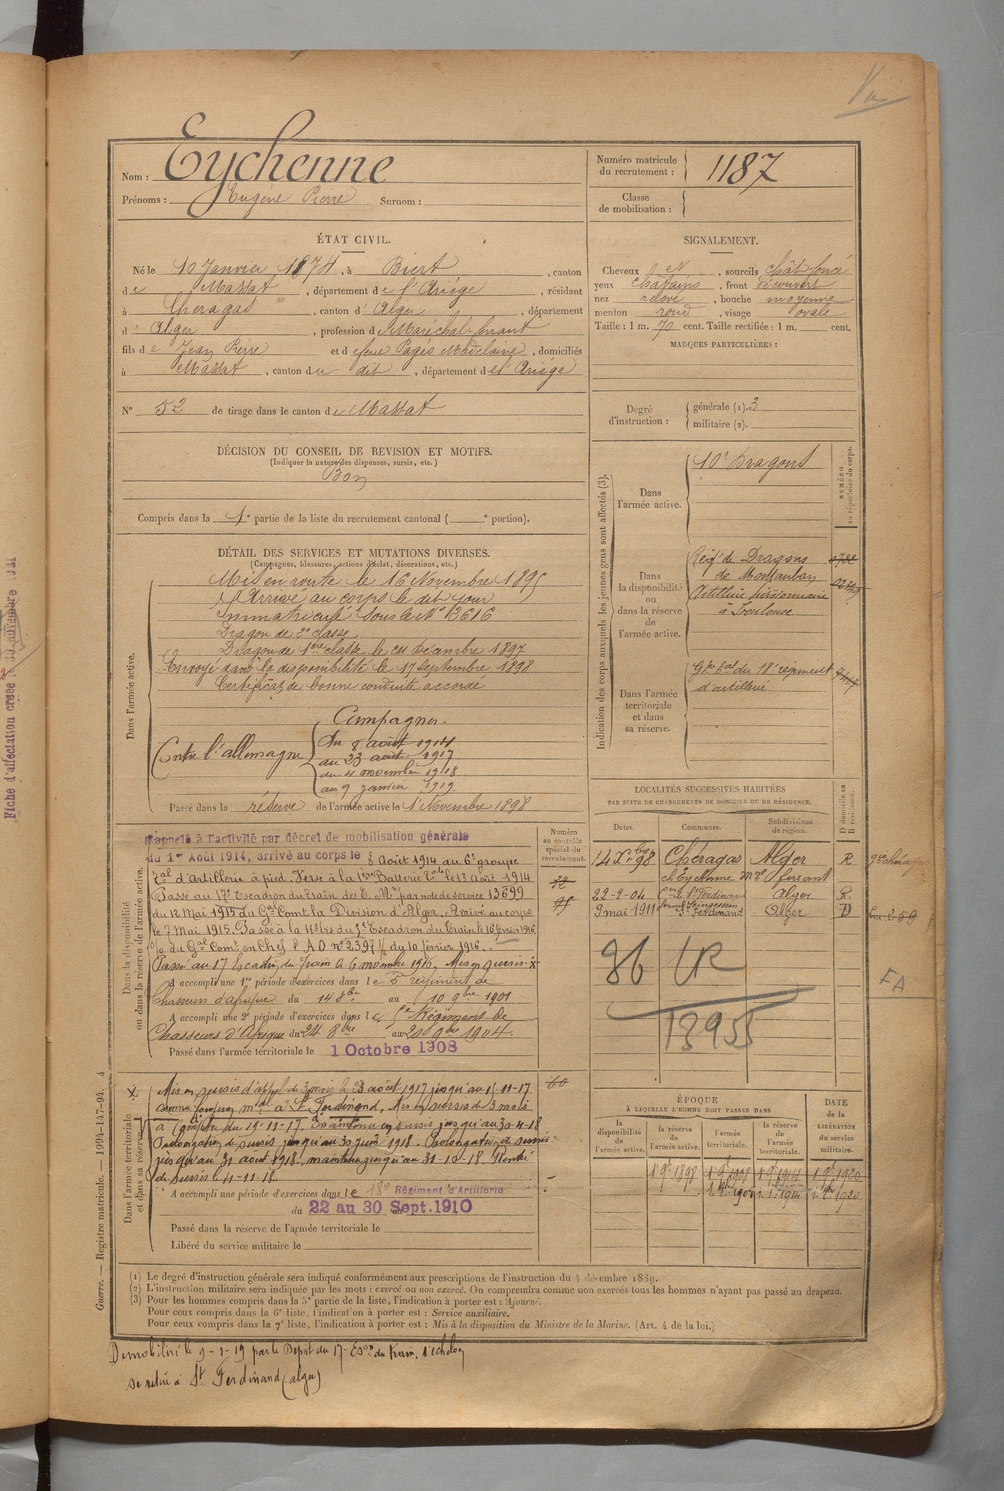 Nom : Eychenne
Prénoms : Eugène Pierre Surnom :
Numéro matricule
du recrutement : 1187
Classe
de mobilisation :
ÉTAT CIVIL.
Né le 10 Janvier 1874, à Biert, canton
de Massat, département de l'Ariège, résidant
à Cheragas, canton d'Alger, département
d'Alger, profession de Maréchal-ferrant
fils de Jean Pierre et de feue Pagès Madelaine, domiciliés
à Massat, canton du dit, département de l'Ariège
N° 52 de tirage dans le canton de Massat
SIGNALEMENT.
Cheveux, sourcils chât foncé
yeux châtains, front découvert
nez relevé, bouche moyenne
menton rond, visage ovale
Taille : 1 m. 70 cent. Taille rectifiée : 1 m. cent.
MARQUES PARTICULIÈRES :
Degré
d'instruction :
générale (1). 3
militaire (2).
DÉCISION DU CONSEIL DE REVISION ET MOTIFS.
(Indiquer la nature des dispenses, sursis, etc.)
Bon
Compris dans la 1e partie de la liste du recrutement cantonal ( e portion).
DÉTAIL DES SERVICES ET MUTATIONS DIVERSES.
(Campagnes, blessures, actions d'éclat, décorations, etc.)
Dans l'armée active.
Mis en route le 16 Novembre 1895
Arrivé au corps le dit jour
Immatriculé sous le N° 3616
Dragon de 2e classe
Dragon de 1ère classe le 24 Décembre 1897
Envoyé dans la disponibilité le 17 Septembre 1898
Certificat de bonne conduite accordé
Campagnes.
Contre l'allemagne
du 8 août 1914
au 23 août 1917
du 4 novembre 1918
au 9 janvier 1919
Passé dans la réserve de l'armée active le 1 Novembre 1898
Indication des corps auxquels les jeunes gens sont affectés (3).
NUMÉRO
au répertoire du corps.
Dans
l'armée active.
10e Dragons
Dans
la disponibilité
ou
dans la réserve
de
l'armée active.
Régt de Dragons
de Montauban
Artillerie divisionnaire
à Toulouse
Dans l'armée
territoriale
et dans
sa réserve.
Gpe tal du 18e régiment
d'artillerie
LOCALITÉS SUCCESSIVES HABITÉES
PAR SUITE DE CHANGEMENTS DE DOMICILE OU DE RÉSIDENCE.
Dates. Communes. Subdivisions
de région.
D domicile ou
R résidence.
14 Xbre 98 Chéragas Alger R
ch Eychenne
22-2-04 St Ferdinand Alger R.
9 mai 1911 St Ferdinand Alger D
FA
86 UR
13955
Numéro
au contrôle
spécial du
recrutement.
Dans la disponibilité
ou dans la réserve de l'armée active.
Rappelé à l'activité par décret de mobilisation générale
du 1er Août 1914, arrivé au corps le 8 Août 1914 au 6e groupe
tal d'Artillerie à pied. Versé à la Batterie le 13 Août 1914
Passé au 17e Escadron du train des E. Mres par note de service 13699
du 12 Mai 1915 du Gal Comt la Division d'Alger, Arrivé au corps
le 7 Mai 1915. Passé à la du 5e Escadron du Train le 16 février 1916
du Gal Comt en Chef l'A.O. n° 2397 du 10 février 1916.
Passé au 17 Escadron du Train le 6 novembre 1916, Mis en sursis X
A accompli une 1re période d'exercices dans le 5e régiment de
Chasseurs d'afrique du 14 8bre au 10 9bre 1901
A accompli une 2e période d'exercices dans le Régiment de
Chasseurs d'Afrique du 24 8bre au 20 9bre 1904.
Passé dans l'armée territoriale le 1 Octobre 1908
Dans l'armée territoriale
et dans sa réserve.
X Mis en sursis d'appel de 3 mois le 23 août 1917 jusqu'au 15-11-17
comme à St Ferdinand, Mis en sursis de 3 mois
à compter du 15-11-17. Maintenu en sursis jusqu'au 30-4-18
Prolongation de sursis jusqu'au 30 juin 1918. Prolongation de sursis
jusqu'au 31 août 1918. maintenu jusqu'au 31-10-18. Rentré
de sursis le 4-11-18.
A accompli une période d'exercices dans le 18e Régiment d'Artillerie
du 22 au 30 Sept. 1910
Passé dans la réserve de l'armée territoriale le
Libéré du service militaire le
ÉPOQUE
À LAQUELLE L'HOMME DOIT PASSER DANS
DATE
de la
LIBÉRATION
du service
militaire.
la
disponibilité
de
l'armée active.
la réserve
de
l'armée active.
l'armée
territoriale.
la réserve
de
l'armée
territoriale.
1 9e 1898 1 9e 1908 1 9e 1914 1 9e 1920
(1) Le degré d'instruction générale sera indiqué conformément aux prescriptions de l'instruction du 4 décembre 1889.
(2) L'instruction militaire sera indiquée par les mots : exercé ou non exercé. On comprendra comme non exercés tous les hommes n'ayant pas passé au drapeau.
(3) Pour les hommes compris dans la 5e partie de la liste, l'indication à porter est : Ajourné.
Pour ceux compris dans la 6e liste, l'indication à porter est : Service auxiliaire.
Pour ceux compris dans la 7e liste, l'indication à porter est : Mis à la disposition du Ministre de la Marine. (Art. 4 de la loi.)
Démobilisé le 9-1-19 par le Dépôt du 17e Eson du Train, 1er échelon
se retire à St Ferdinand (alger)
Guerre. — Registre matricule. — 1094-147-94. 4